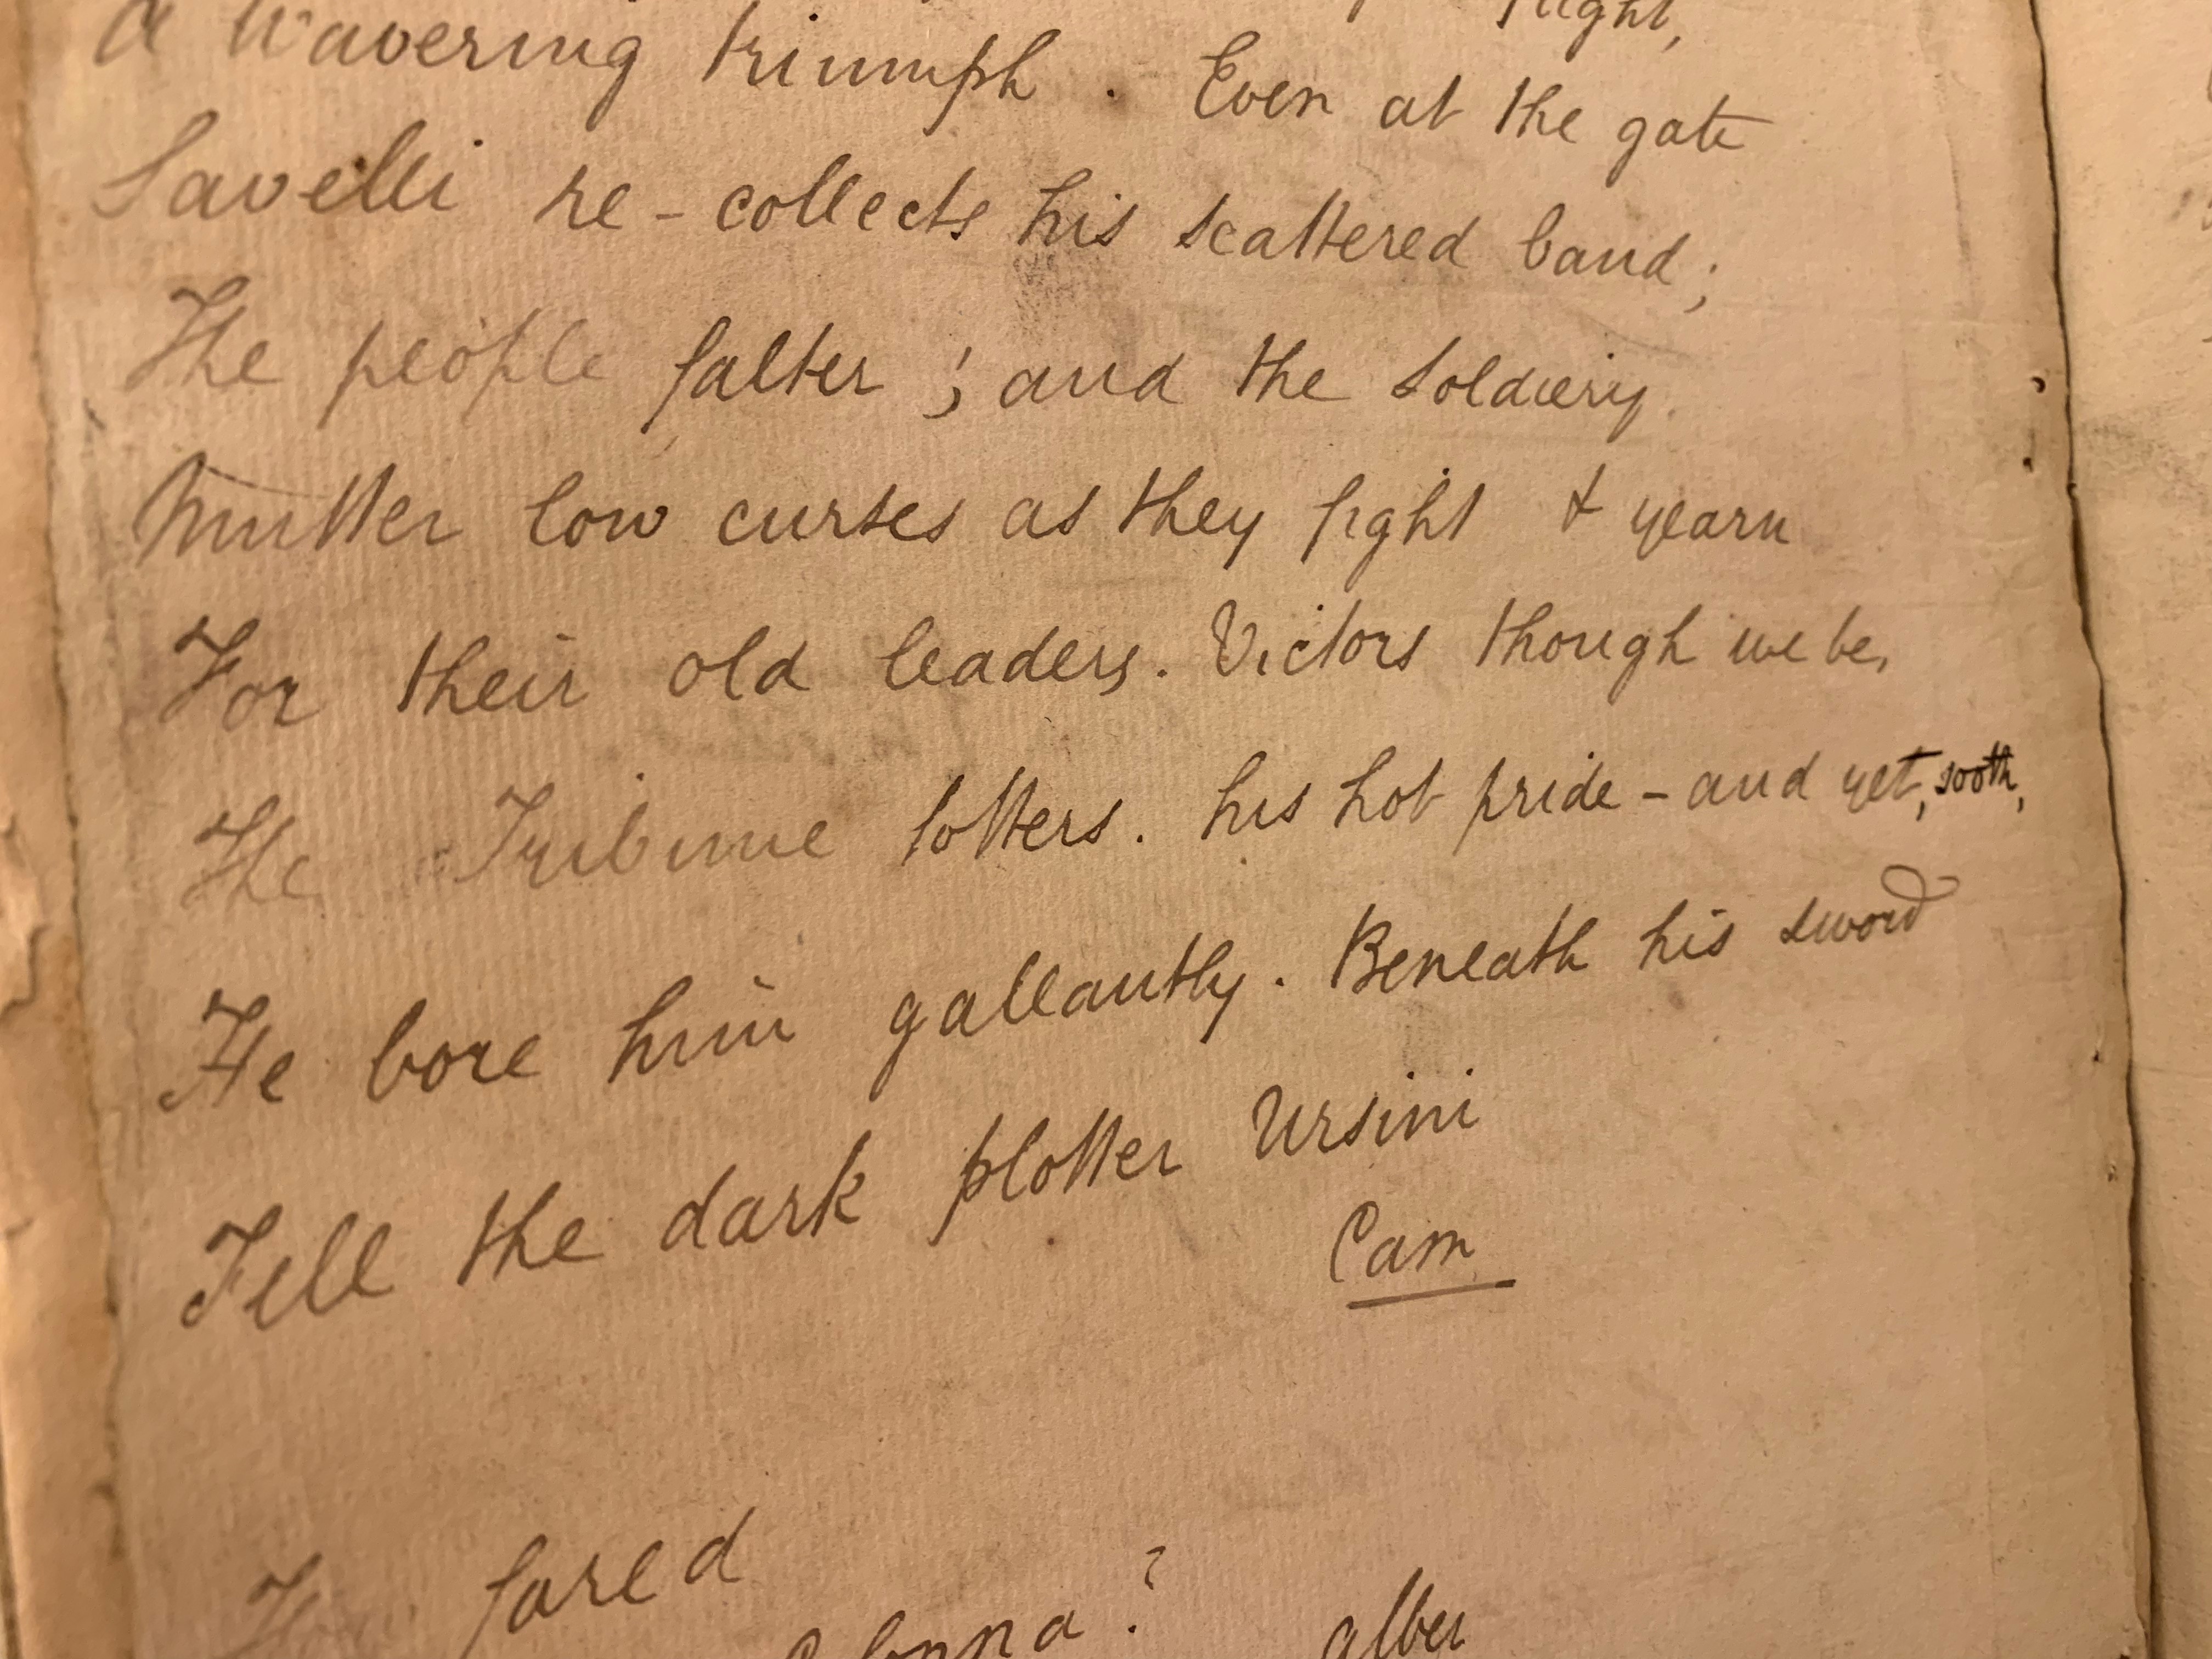 flight,
A wavering triumph. Even at the gate
Savelli re-collects his scattered band;
The people falter; and the soldiery
Mutter low curses as they fight & yearn
For their old leaders. Victors though we be,
The Tribune totters. his hot pride - and yet, sooth,
He bore him gallantly. Beneath his sword
Fell the dark plotter Ursini
Cam
How fared
Colonna?
Alber